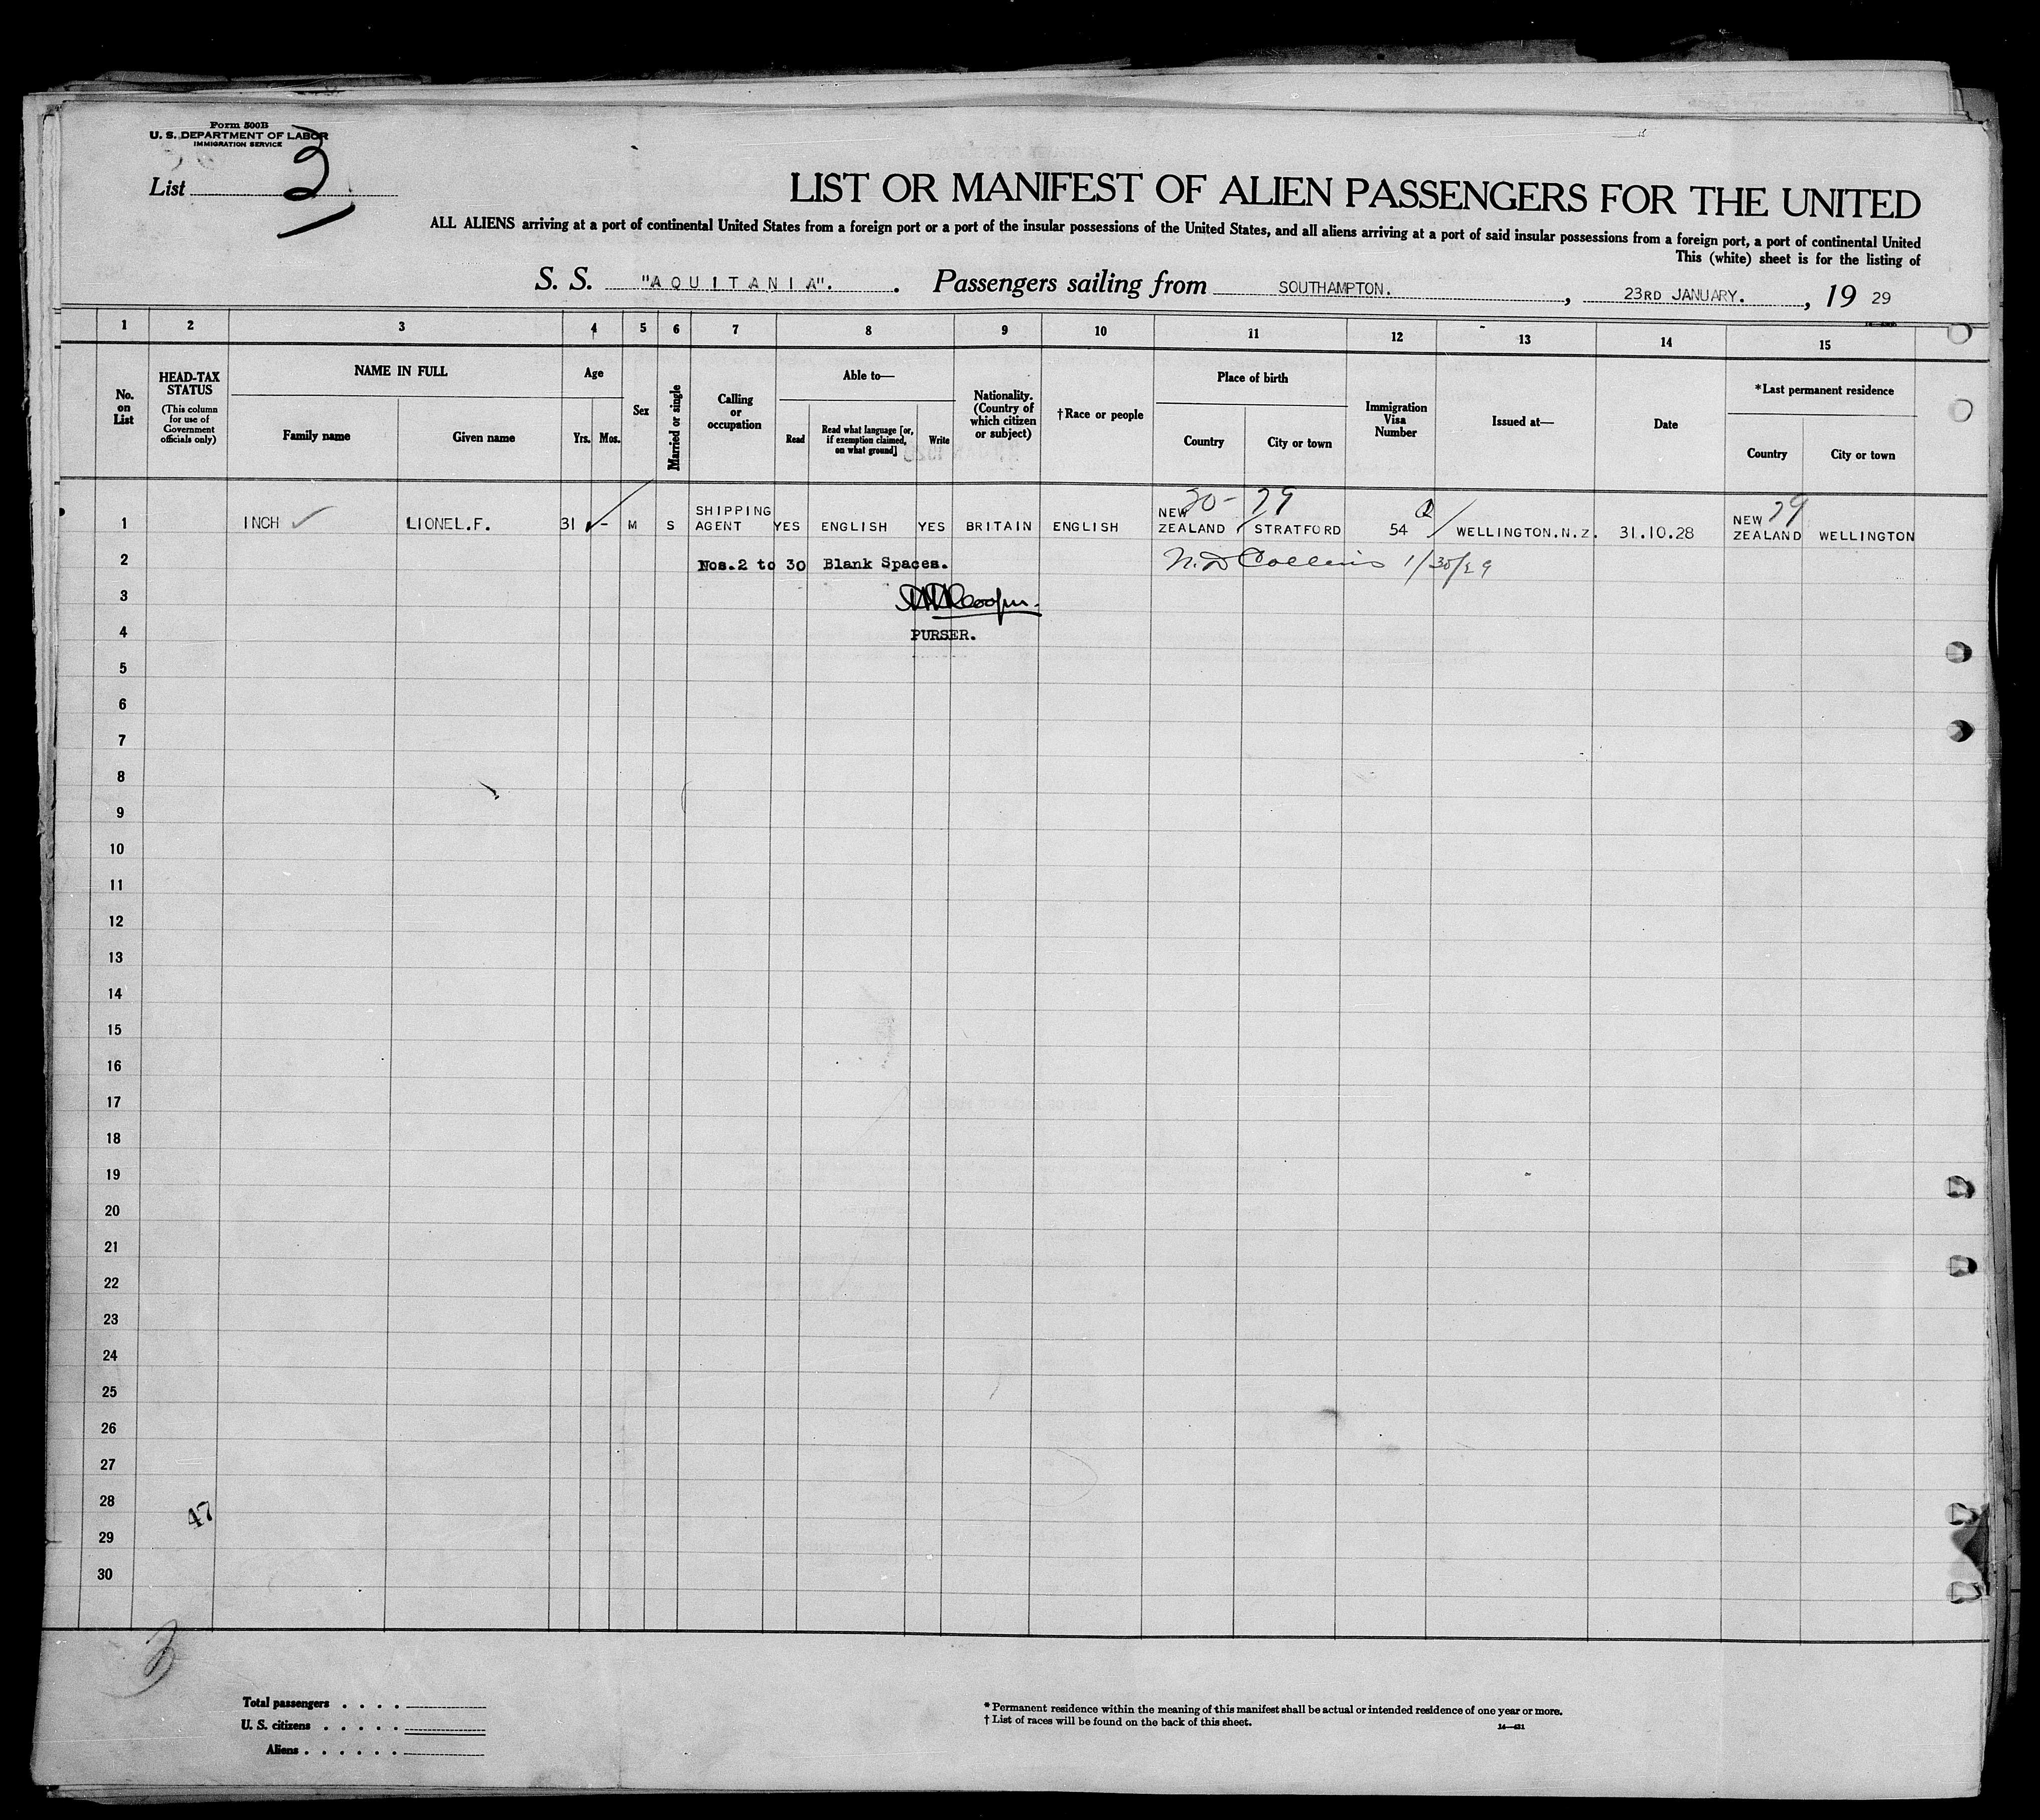 Form 500B
U. S. DEPARTMENT OF LABOR
IMMIGRATION SERVICE
List 3
LIST OR MANIFEST OF ALIEN PASSENGERS FOR THE UNITED
ALL ALIENS arriving at a port of continental United States from a foreign port or a port of the insular possessions of the United States, and all aliens arriving at a port of said insular possessions from a foreign port, a port of continental United
This (white) sheet is for the listing of
S. S. "AQUITANIA". . Passengers sailing from SOUTHAMPTON. , 23RD JANUARY. , 19 29
1 2 3 4 5 6 7 8 9 10 11 12 13 14 15
No. on List
HEAD-TAX STATUS
(This column for use of Government officials only)
NAME IN FULL
Family name Given name
Age
Yrs. Mos.
Sex
Married or single
Calling or occupation
Able to—
Read
Read what language [or, if exemption claimed, on what ground]
Write
Nationality. (Country of which citizen or subject)
†Race or people
Place of birth
Country City or town
Immigration Visa Number
Issued at—
Date
*Last permanent residence
Country City or town
30- 79 79
1 INCH ✓ LIONEL.F. 31 - M S SHIPPING AGENT YES ENGLISH YES BRITAIN ENGLISH NEW ZEALAND STRATFORD 54 WELLINGTON.N.Z. 31.10.28 NEW ZEALAND WELLINGTON
2 Nos.2 to 30 Blank Spaces. N.D Collins 1/30/29
3
4 PURSER.
5
6
7
8
9
10
11
12
13
14
15
16
17
18
19
20
21
22
23
24
25
26
27
28
47
29
30
3
Total passengers . . . .
U. S. citizens . . . . .
Aliens . . . . . .
* Permanent residence within the meaning of this manifest shall be actual or intended residence of one year or more.
† List of races will be found on the back of this sheet.
14—421